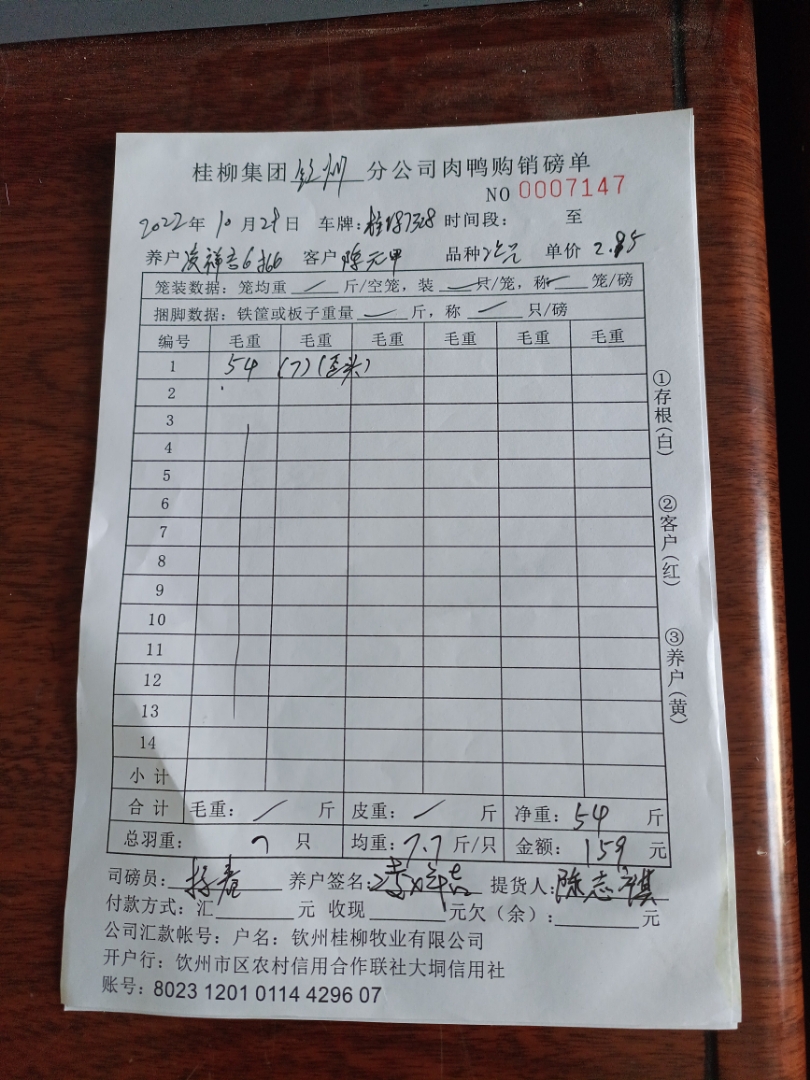 桂柳集团 钦州 分公司肉鸭购销磅单
NO 0007147
2022年 10月 29日 车牌: 时间段: 至
养户 客户 陈元甲 品种 单价 2.85
笼装数据: 笼均重 / 斤/空笼, 装 — 只/笼, 称 — 笼/磅
捆脚数据: 铁筐或板子重量 — 斤, 称 — 只/磅
编号 毛重 毛重 毛重 毛重 毛重 毛重
1 54 (7) (歪头)
2
3
4
5
6
7
8
9
10
11
12
13
14
小计
合计 毛重: / 斤 皮重: / 斤 净重: 54 斤
总羽重: 7 只 均重: 7.7 斤/只 金额: 159 元
①存根(白)
②客户(红)
③养户(黄)
司磅员: 养户签名: 提货人: 陈志祺
付款方式: 汇 元 收现 元欠(余): 元
公司汇款帐号: 户名: 钦州桂柳牧业有限公司
开户行: 钦州市区农村信用合作联社大垌信用社
账号: 8023 1201 0114 4296 07